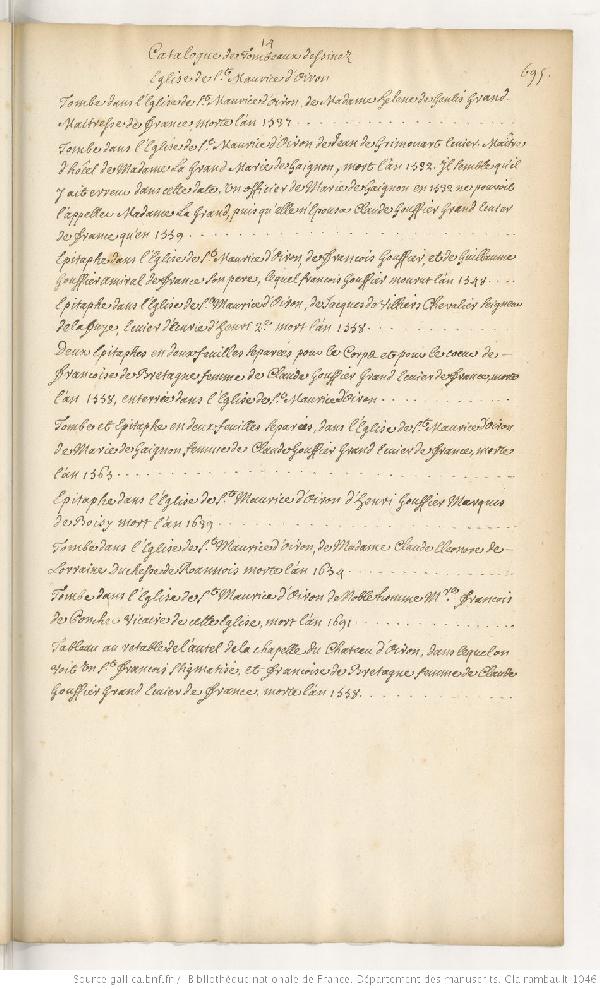 14
Catalogue des Tombeaux dessinez
Eglise de St. Maurice d'Oiron
695.
Tombe dans l'Eglise de St. Maurice d'Oiron, de Madame helene de Genlis Grand
Maitresse de France, morte l'an 1537
Tombe dans l'Eglise de St. Maurice d'Oiron de Jean de Grimouart Ecuier, Maître
d'hotel de Madame La Grand Marie de Gaignon, mort l'an 1532. Il semble qu'il
y ait erreur dans cette date. Un officier de Marie de Gaignon en 1532 ne pouvoit
l'appeller Madame La Grand, puis qu'elle n'epousa Claude Gouffier Grand Ecuier
de France qu'en 1559
Epitaphe dans l'Eglise de St. Maurice d'Oiron, de François Gouffier, et de Guillaume
Gouffier amiral de France son pere, lequel François Gouffier mourut l'an 1548
Epitaphe dans l'Eglise de St. Maurice d'Oiron, de Jacques de Villiers Chevalier Seigneur
de la Ecuier d'Ecurie d'Henri 2e. mort l'an 1558
Deux Epitaphes en deux feuilles separées pour le Corps et pour le coeur de
Françoise de Bretagne femme de Claude Gouffier Grand Ecuier de France, morte
l'an 1558, enterrée dans l'Eglise de St. Maurice d'Oiron
Tombe et Epitaphe en deux feuilles separées, dans l'Eglise de St. Maurice d'Oiron
de Marie de Gaignon femme de Claude Gouffier Grand Ecuier de France, morte
l'an 1565
Epitaphe dans l'Eglise de St. Maurice d'Oiron d'Henri Gouffier Marquis
de Boisy mort l'an 1639
Tombe dans l'Eglise de St. Maurice d'Oiron, de Madame Claude Eleonore de
Lorraine Duchesse de Roannois morte l'an 1654
Tombe dans l'Eglise de St. Maurice d'Oiron de Noble homme Mre. François
de Vicaire de cette Eglise, mort l'an 1691
Tableau au retable de l'autel de la chapelle du Chateau d'Oiron, dans lequel on
voit un St. François stigmatisé, et Françoise de Bretagne femme de Claude
Gouffier Grand Ecuier de France, morte l'an 1558
Source gallica.bnf.fr / Bibliothèque nationale de France. Département des manuscrits. Clairambault 1046